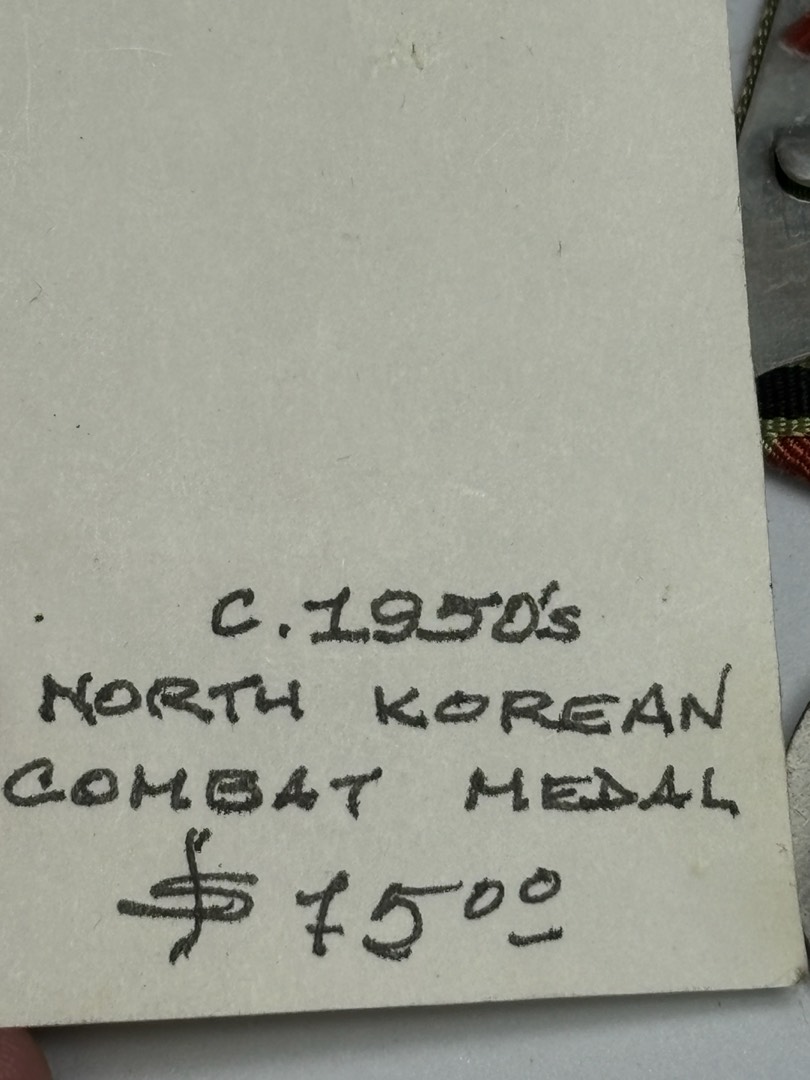 C. 1950's
NORTH KOREAN
COMBAT MEDAL
$ 75 00